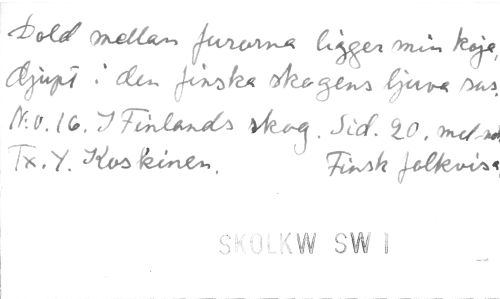 Dold mellan furorna ligger min koja,
djupt i den finska skogens ljuva sus.
N:o. 16. I Finlands skog. Sid. 20. mel-
Tx. Y. Koskinen. Finsk folkvisa
SKOLKW SW I